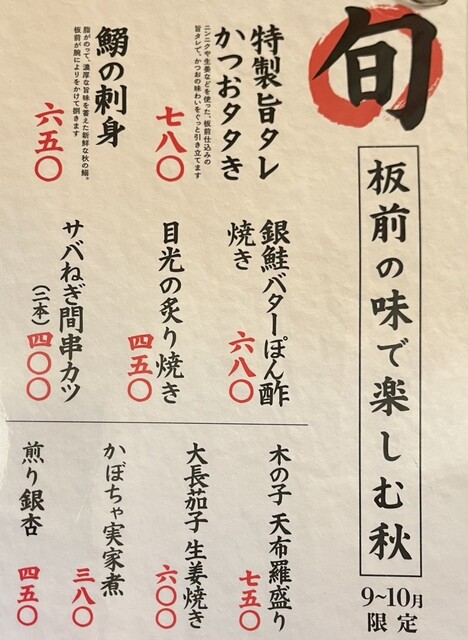 旬
板前の味で楽しむ秋
9~10月
限定
特製旨タレ
かつおタタき
ニンニクや生姜などを使った、板前仕込みの
旨タレで、かつおの味わいをぐっと引き立てます
七八〇
鰯の刺身
脂がのって、濃厚な旨味を蓄えた新鮮な秋の鰯。
板前が腕によりをかけて捌きます
六五〇
銀鮭バターぽん酢
焼き
六八〇
目光の炙り焼き
四五〇
サバねぎ間串カツ
(二本)四〇〇
木の子 天布羅盛り
七五〇
大長茄子 生姜焼き
六〇〇
かぼちゃ実家煮
三八〇
煎り銀杏
四五〇